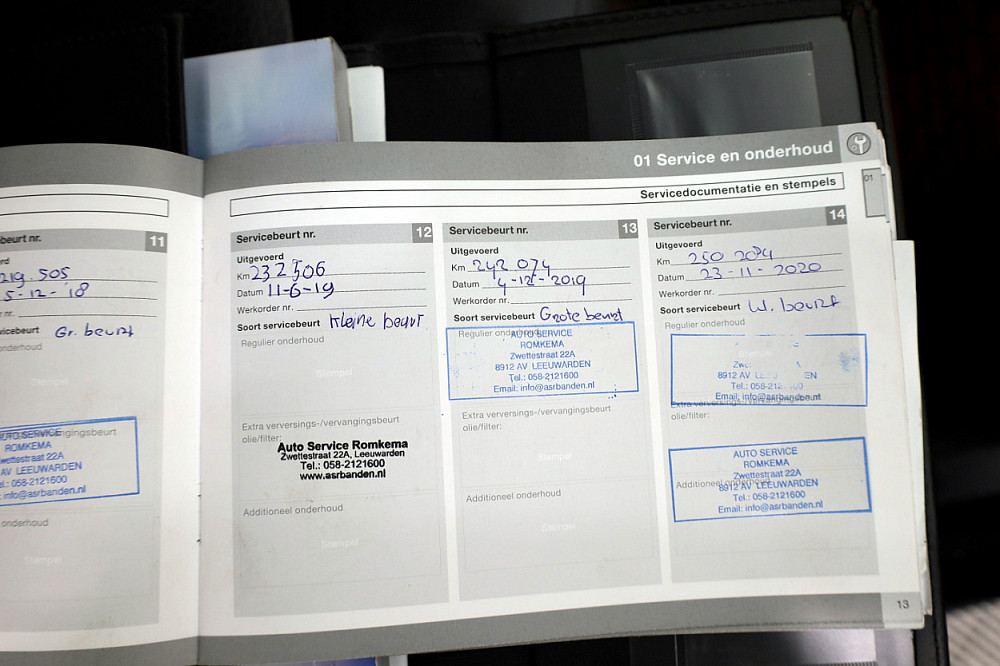 01 Service en onderhoud
01
Servicedocumentatie en stempels
beurt nr. 11
rd
219.505
5-12-'18
r nr.
vicebeurt Gr. beurt
onderhoud
Stempel
AUTO SERVICE
ROMKEMA
Zwettestraat 22A
AV LEEUWARDEN
Tel.: 058-2121600
info@asrbanden.nl
gingsbeurt
onderhoud
Stempel
Servicebeurt nr. 12
Uitgevoerd
Km 232506
Datum 11-6-19
Werkorder nr.
Soort servicebeurt kleine beurt
Regulier onderhoud
Stempel
Extra verversings-/vervangingsbeurt
olie/filter:
Auto Service Romkema
Zwettestraat 22A, Leeuwarden
Tel.: 058-2121600
www.asrbanden.nl
Additioneel onderhoud
Stempel
Servicebeurt nr. 13
Uitgevoerd
Km 242.074
Datum 4-12-2019
Werkorder nr.
Soort servicebeurt Grote beurt
Regulier onderhoud
AUTO SERVICE
ROMKEMA
Zwettestraat 22A
8912 AV LEEUWARDEN
Tel.: 058-2121600
Email: info@asrbanden.nl
Extra verversings-/vervangingsbeurt
olie/filter:
Stempel
Additioneel onderhoud
Stempel
Servicebeurt nr. 14
Uitgevoerd
Km 250 2084
Datum 23-11-2020
Werkorder nr.
Soort servicebeurt W. beurt
Regulier onderhoud
Stempel
Zwe
8912 AV L EN
Tel.: 058-212 00
Email: info@asrbanden.nl
Extra verversings-/vervangingsbeurt
olie/filter:
AUTO SERVICE
ROMKEMA
Zwettestraat 22A
8912 AV LEEUWARDEN
Tel.: 058-2121600
Email: info@asrbanden.nl
Additioneel onderhoud
13